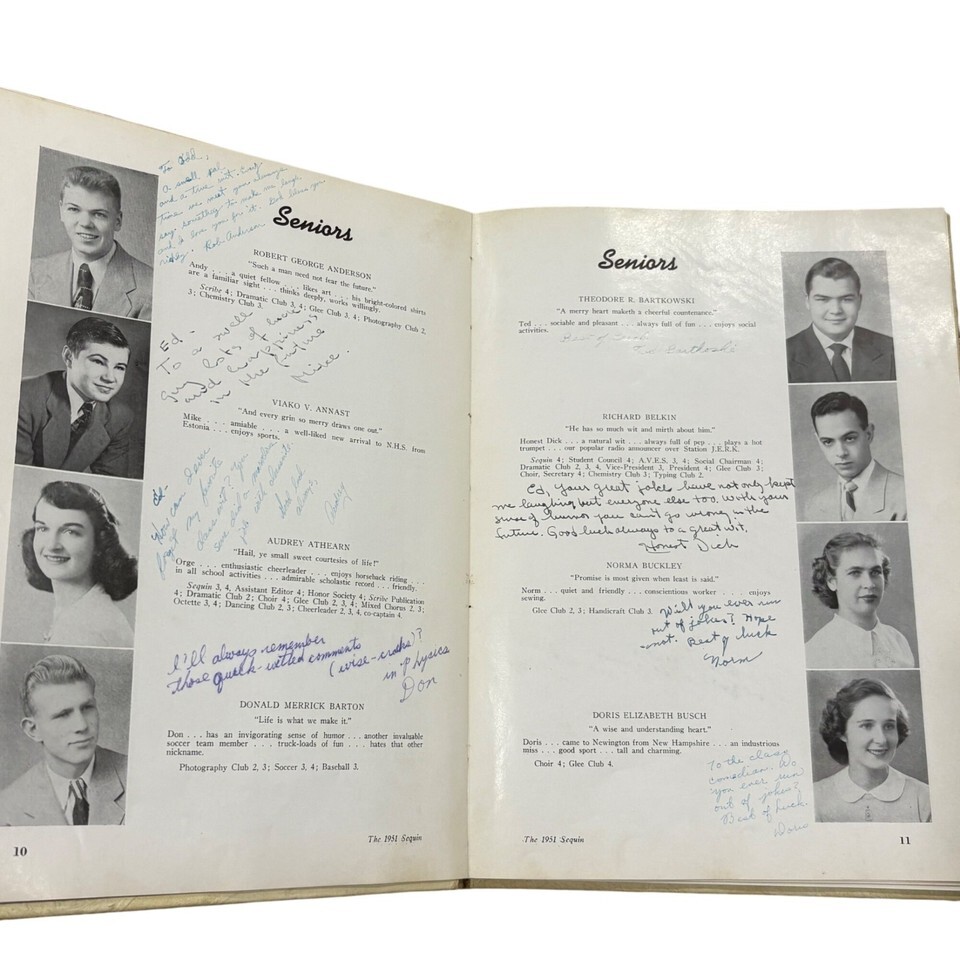 To Odd,
A swell pal,
and a true wit. Every
time we meet you always
say something to make me laugh
and I love you for it. God bless you
Rob Anderson
Seniors
ROBERT GEORGE ANDERSON
"Such a man need not fear the future."
Andy . . . a quiet fellow . . . likes art . . . his bright-colored shirts
are a familiar sight . . . thinks deeply, works willingly.
Scribe 4; Dramatic Club 3, 4; Glee Club 3, 4; Photography Club 2,
3; Chemistry Club 3.
Ed-
To a swell
guy lots of luck
and happiness
in the future
Mike.
VIAKO V. ANNAST
"And every grin so merry draws one out."
Mike . . . amiable . . . a well-liked new arrival to N.H.S. from
Estonia . . . enjoys sports.
Ed-
How can I ever
forget
always,
AUDREY ATHEARN
"Hail, ye small sweet courtesies of life!"
Orge . . . enthusiastic cheerleader . . . enjoys horseback riding . . .
in all school activities . . . admirable scholastic record . . . friendly.
Sequin 3, 4, Assistant Editor 4; Honor Society 4; Scribe Publication
4; Dramatic Club 2; Choir 4; Glee Club 2, 3, 4; Mixed Chorus 2, 3;
Octette 3, 4; Dancing Club 2, 3; Cheerleader 2, 3, 4, co-captain 4.
I'll always remember
those quick-witted comments
(wise-cracks)?
in physics
Don
DONALD MERRICK BARTON
"Life is what we make it."
Don . . . has an invigorating sense of humor . . . another invaluable
soccer team member . . . truck-loads of fun . . . hates that other
nickname.
Photography Club 2, 3; Soccer 3, 4; Baseball 3.
10
The 1951 Sequin
Seniors
THEODORE R. BARTKOWSKI
"A merry heart maketh a cheerful countenance."
Ted . . . sociable and pleasant . . . always full of fun . . . enjoys social
activities.
Best of Luck
Ed Bartkoski
RICHARD BELKIN
"He has so much wit and mirth about him."
Honest Dick . . . a natural wit . . . always full of pep . . . plays a hot
trumpet . . . our popular radio announcer over Station J.E.R.K.
Sequin 4; Student Council 4; A.V.E.S. 3, 4; Social Chairman 4;
Dramatic Club 2, 3, 4, Vice-President 3, President 4; Glee Club 3;
Choir, Secretary 4; Chemistry Club 3; Typing Club 2.
Ed, Your great jokes have not only kept
me laughing but everyone else too. With your
sense of humor you can't go wrong in the
future. Good luck always to a great wit,
Honest Dick
NORMA BUCKLEY
"Promise is most given when least is said."
Norm . . . quiet and friendly . . . conscientious worker . . . enjoys
sewing.
Glee Club 2, 3; Handicraft Club 3.
Will you ever run
out of jokes? Hope
not. Best of luck
Norm
DORIS ELIZABETH BUSCH
"A wise and understanding heart."
Doris . . . came to Newington from New Hampshire . . . an industrious
miss . . . good sport . . . tall and charming.
Choir 4; Glee Club 4.
To the class
comedian. Do
you ever run
out of jokes?
Best of luck.
Doris
The 1951 Sequin
11